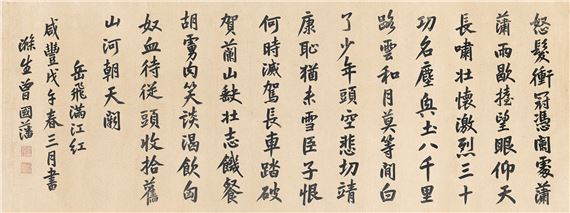 怒髮衝冠憑闌處蕭
蕭雨歇擡望眼仰天
長嘯壯懷激烈三十
功名塵與土八千里
路雲和月莫等閒白
了少年頭空悲切靖
康恥猶未雪臣子恨
何時滅駕長車踏破
賀蘭山缺壯志饑餐
胡虜肉笑談渴飲匈
奴血待從頭收拾舊
山河朝天闕
岳飛滿江紅
咸豐戊午春三月書
滌生曾國藩